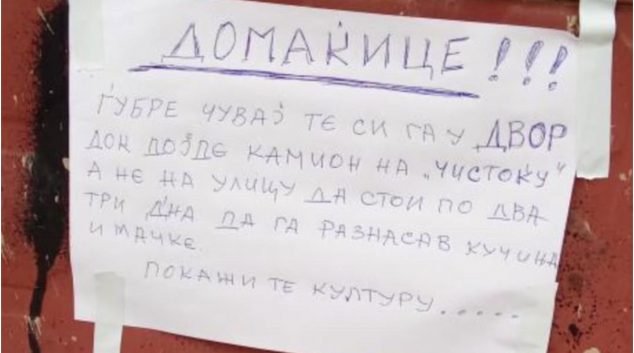 ДОМАЌИЦЕ!!!
ЃУБРЕ ЧУВАЈТЕ СИ ГА У ДВОР
ДОК ДОЈДЕ КАМИОН НА „ЧИСТОЌУ“
А НЕ НА УЛИЦУ ДА СТОИ ПО ДВА
ТРИ ДНА ДА ГА РАЗНАСАВ КУЧИЊА
И МАЧКЕ.
ПОКАЖИТЕ КУЛТУРУ.....